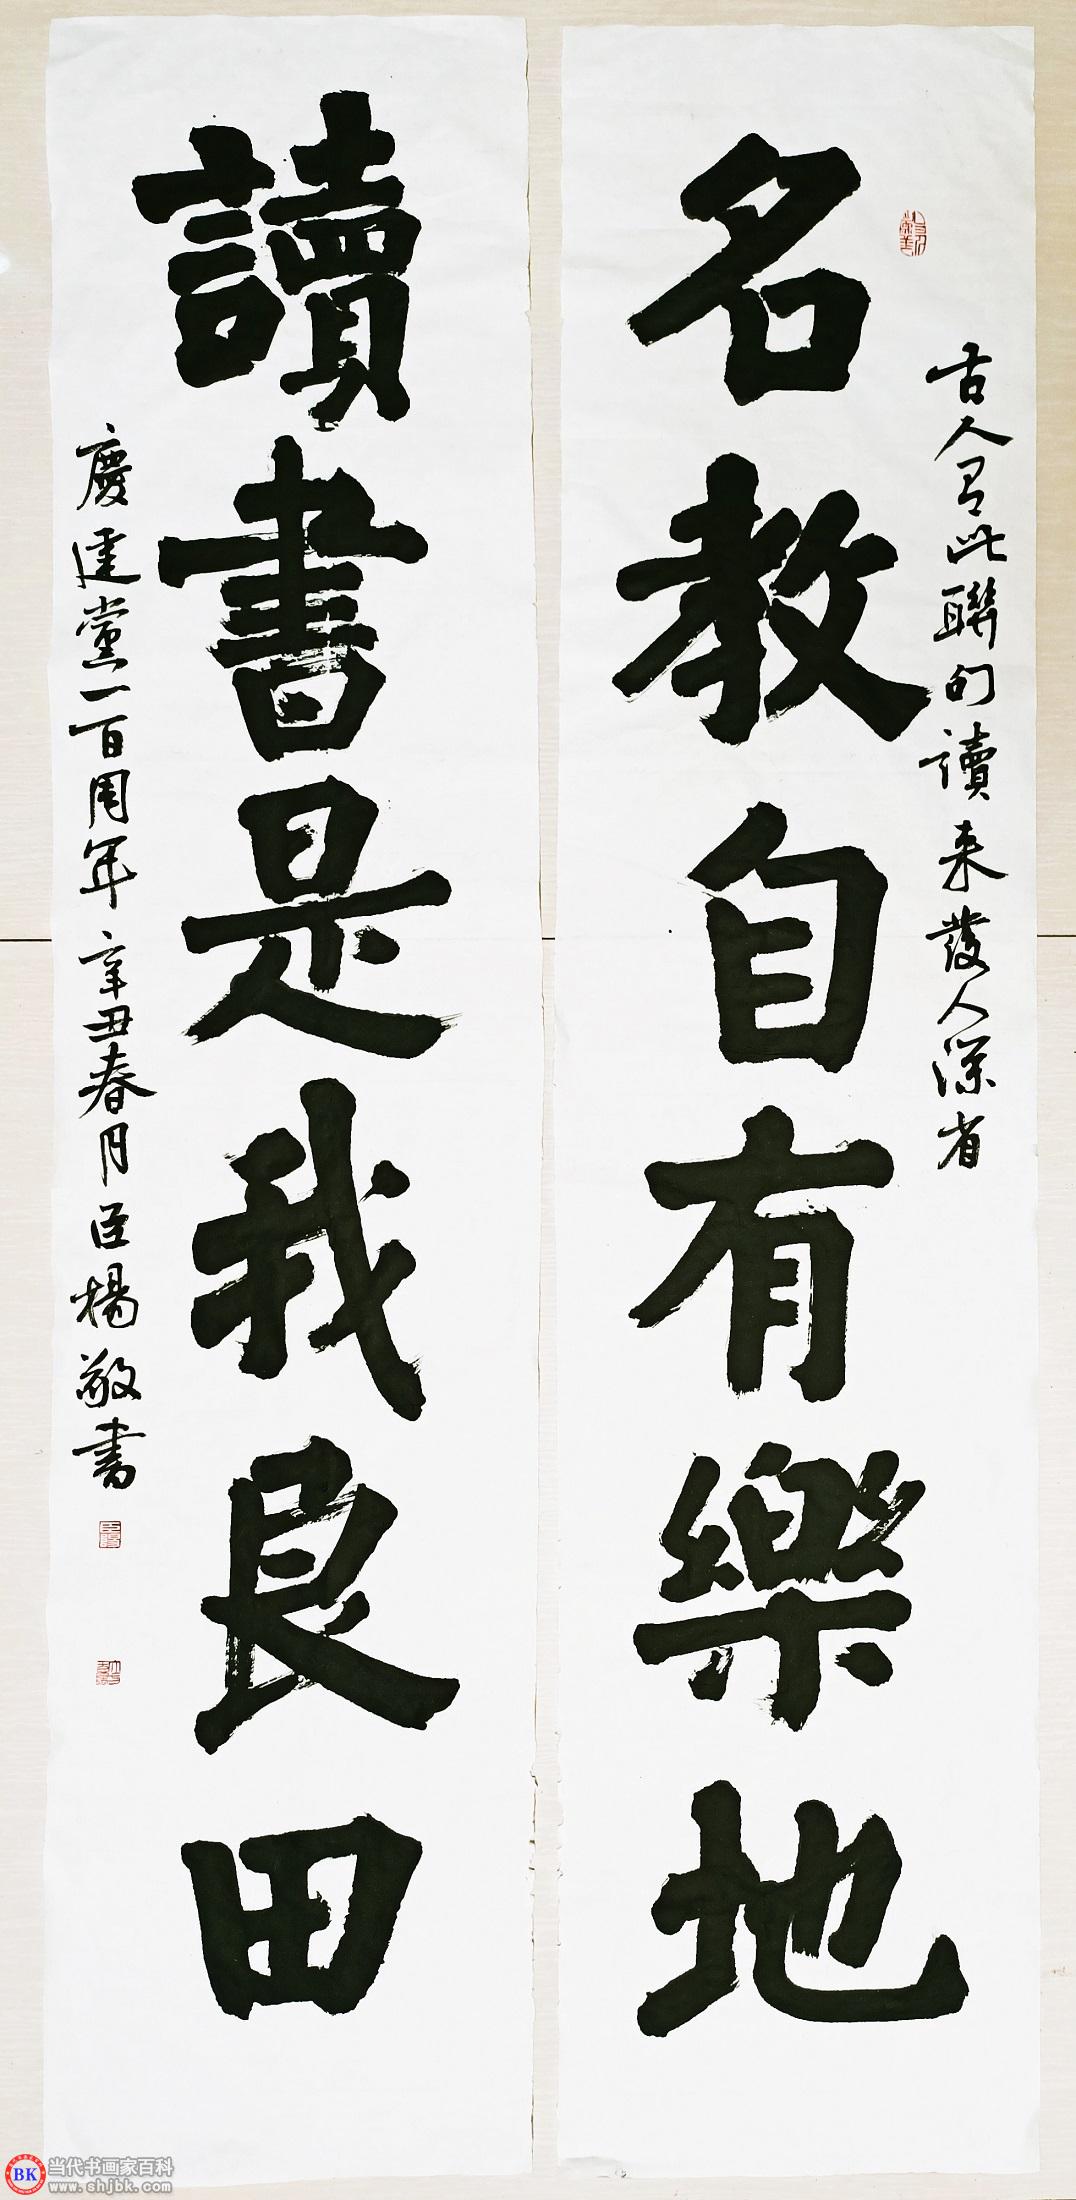 名教自有樂地
古人有此聯句讀来發人深省
讀書是我良田
慶建黨一百周年辛丑春月臣楊敬書
BK
当代书画家百科
www.shjbk.com